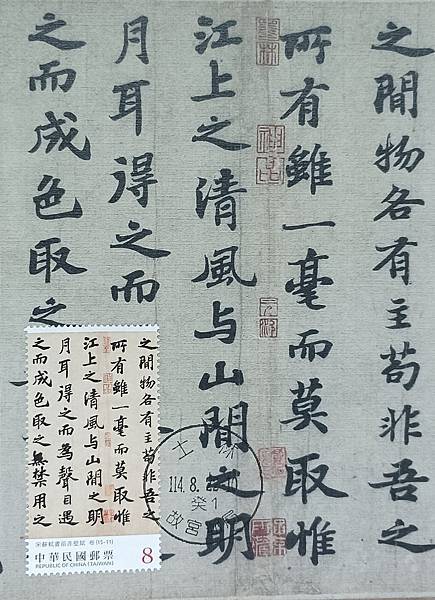 之間物各有主苟非吾之
所有雖一毫而莫取惟
江上之清風与山間之明
月耳得之而
之而成色取之
之間物各有主苟非吾之
所有雖一毫而莫取惟
江上之清風与山間之明
月耳得之而為聲目遇
之而成色取之無禁用之
宋蘇軾書前赤壁賦 卷(15-11)
中華民國郵票 8
REPUBLIC OF CHINA (TAIWAN)
士林
114.8.22
癸1
故宮